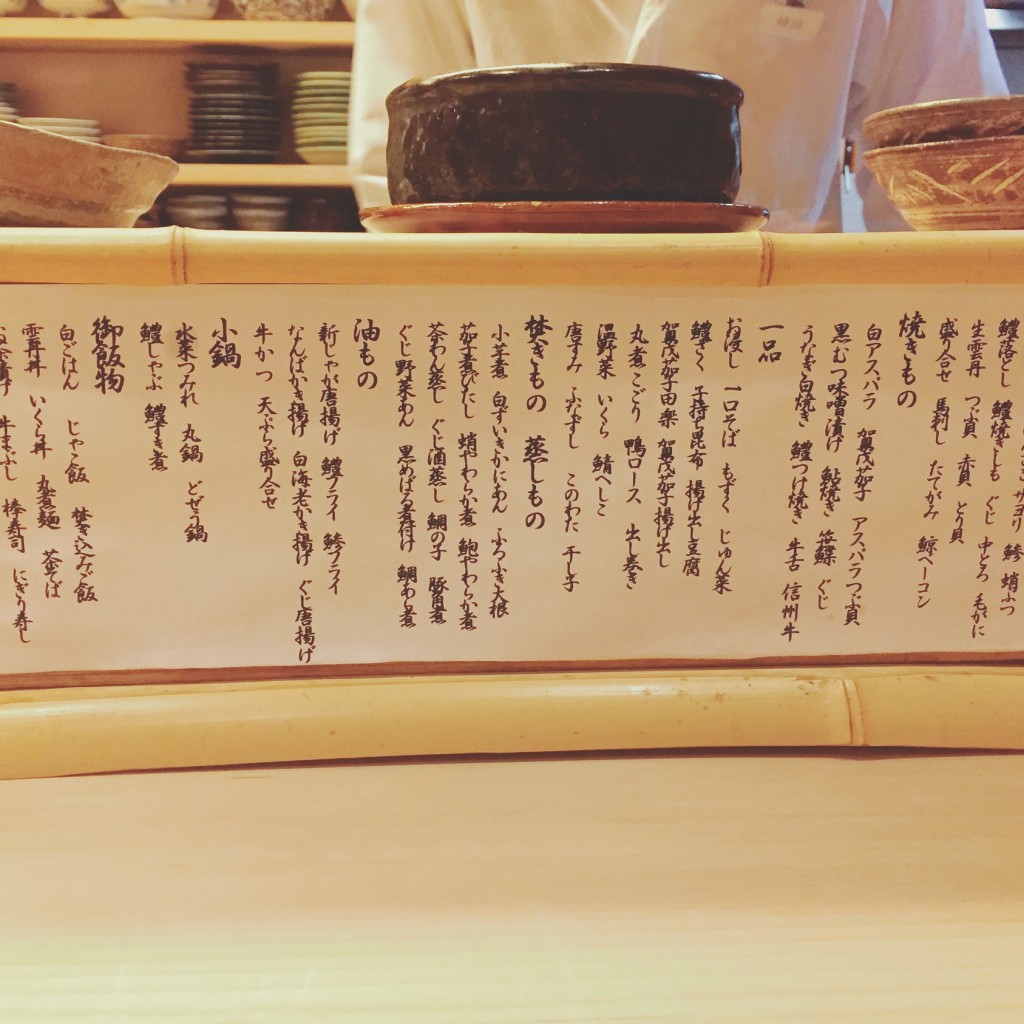 サヨリ 鯵 蛸ぶつ
鱧落とし 鱧焼きしも ぐじ 中とろ 毛がに
生雲丹 つぶ貝 赤貝 とり貝
盛り合せ 馬刺し たてがみ 鯨ベーコン
焼きもの
白アスパラ 賀茂茄子 アスパラつぶ貝
黒むつ味噌漬け 鮎焼き 笹鰈 ぐじ
うなぎ白焼き 鱧つけ焼き 牛舌 信州牛
一品
お浸し 一口そば もずく じゅん菜
鱧ざく 子持ち昆布 揚げ出し豆腐
賀茂茄子田楽 賀茂茄子揚げ出し
丸煮こごり 鴨ロース 出し巻き
温野菜 いくら 鯖へしこ
唐すみ ふなずし このわた 干し子
焚きもの 蒸しもの
小芋煮 白ずいきかにあん ふろふき大根
茄子煮びたし 蛸やわらか煮 鮑やわらか煮
茶わん蒸し ぐじ酒蒸し 鯛の子 豚角煮
ぐじ野菜あん 黒めばる煮付け 鯛あら煮
油もの
新じゃが唐揚げ 鱧フライ 鯵フライ
なんばかき揚げ 白海老かき揚げ ぐじ唐揚げ
牛かつ 天ぷら盛り合せ
小鍋
水菜つみれ 丸鍋 どぜう鍋
鱧しゃぶ 鱧すき煮
御飯物
白ごはん じゃこ飯 焚き込みご飯
雲丹丼 いくら丼 丸煮麺 茶そば
お茶漬け 牛まぶし 棒寿司 にぎり寿し